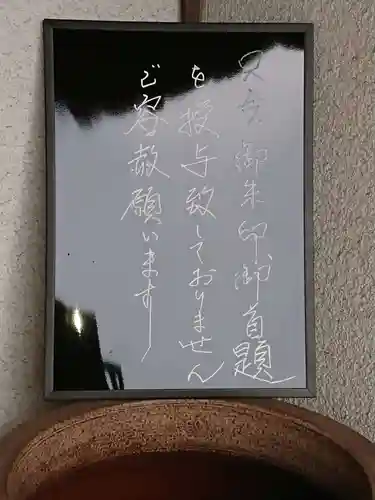 只今御朱印御首題
を授与致しておりません
ご容赦願います